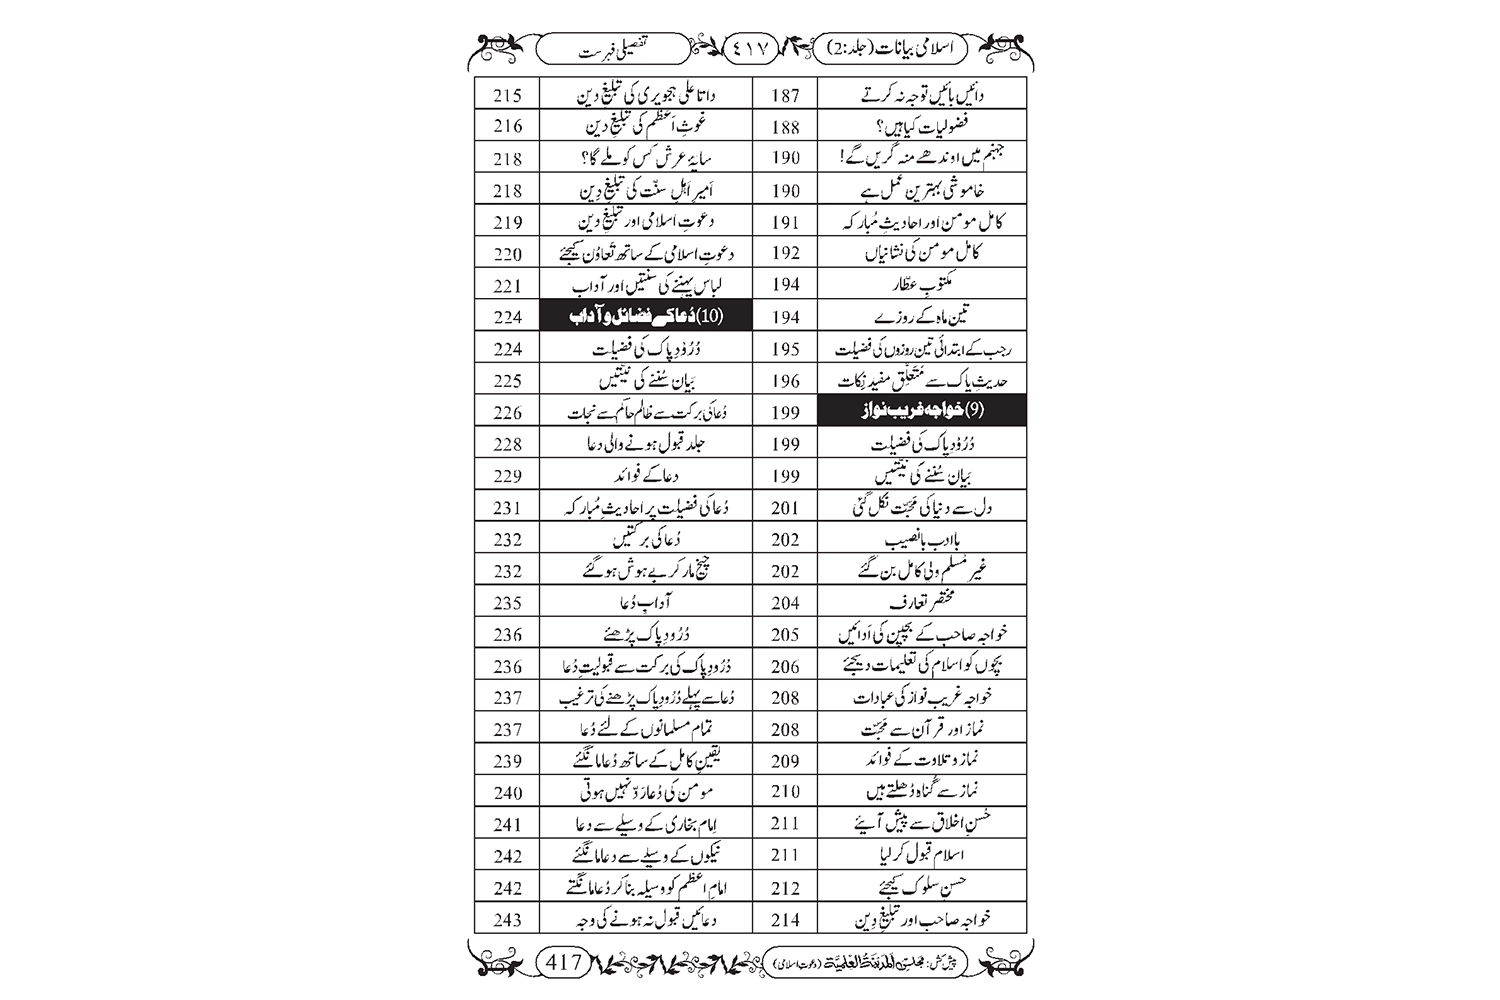 اسلامی بیانات (جلد:2)
٤١٧
تفصیلی فہرست
دائیں بائیں توجہ نہ کرتے 187
فضولیات کیا ہیں؟ 188
جہنم میں اوندھے منہ گریں گے! 190
خاموشی بہترین عمل ہے 190
کامل مومن اور احادیثِ مُبارکہ 191
کامل مومن کی نشانیاں 192
مکتوبِ عطّار 194
تین ماہ کے روزے 194
رجب کے ابتدائی تین روزوں کی فضیلت 195
حدیثِ پاک سے مُتَعَلِّق مفید نِکات 196
(9) خواجہ غریب نواز 199
دُرُودِ پاک کی فضیلت 199
بَیان سُننے کی نیّتیں 199
دل سے دنیا کی مَحَبَّت نکل گئی 201
باادب بانصیب 202
غیر مُسلم ولیِ کامل بن گئے 202
مختصر تعارف 204
خواجہ صاحب کے بچپن کی اَدائیں 205
بچّوں کو اسلام کی تعلیمات دیجئے 206
خواجہ غریب نواز کی عبادات 208
نماز اور قرآن سے مَحَبَّت 208
نماز و تلاوت کے فوائد 209
نماز سے گُناہ دُھلتے ہیں 210
حُسنِ اخلاق سے پیش آیئے 211
اسلام قبول کرلیا 211
حسنِ سلوک کیجئے 212
خواجہ صاحب اور تبلیغِ دِین 214
داتا علی ہجویری کی تبلیغِ دِین 215
غوثِ اَعظم کی تبلیغِ دِین 216
سایۂ عرش کس کو ملے گا؟ 218
اَمیرِ اَہلِ سنّت کی تبلیغِ دِین 218
دعوتِ اسلامی اور تبلیغِ دین 219
دعوتِ اسلامی کے ساتھ تَعاوُن کیجئے 220
لباس پہننے کی سنتیں اور آداب 221
(10) دُعا کے فضائل و آداب 224
دُرُودِ پاک کی فضیلت 224
بَیان سُننے کی نیّتیں 225
دُعا کی برکت سے ظالم حاکم سے نجات 226
جلد قبول ہونے والی دعا 228
دعا کے فوائد 229
دُعا کی فضیلت پر احادیثِ مُبارکہ 231
دُعا کی برکتیں 232
چیخ مار کر بے ہوش ہو گئے 232
آدابِ دُعا 235
دُرُودِ پاک پڑھئے 236
دُرُودِ پاک کی برکت سے قبولیتِ دُعا 236
دُعا سے پہلے دُرُودِ پاک پڑھنے کی ترغیب 237
تمام مسلمانوں کے لئے دُعا 237
یقینِ کامل کے ساتھ دُعا مانگئے 239
مومن کی دُعا رَدّ نہیں ہوتی 240
اِمام بخاری کے وسیلے سے دعا 241
نیکوں کے وسیلے سے دعا مانگئے 242
امامِ اعظم کو وسیلہ بنا کر دُعا مانگتے 242
دعائیں قبول نہ ہونے کی وجہ 243
پیش کش: مجلس اَلْمَدِیْنَۃُ الْعِلْمِیَّۃ (دعوتِ اسلامی)
417